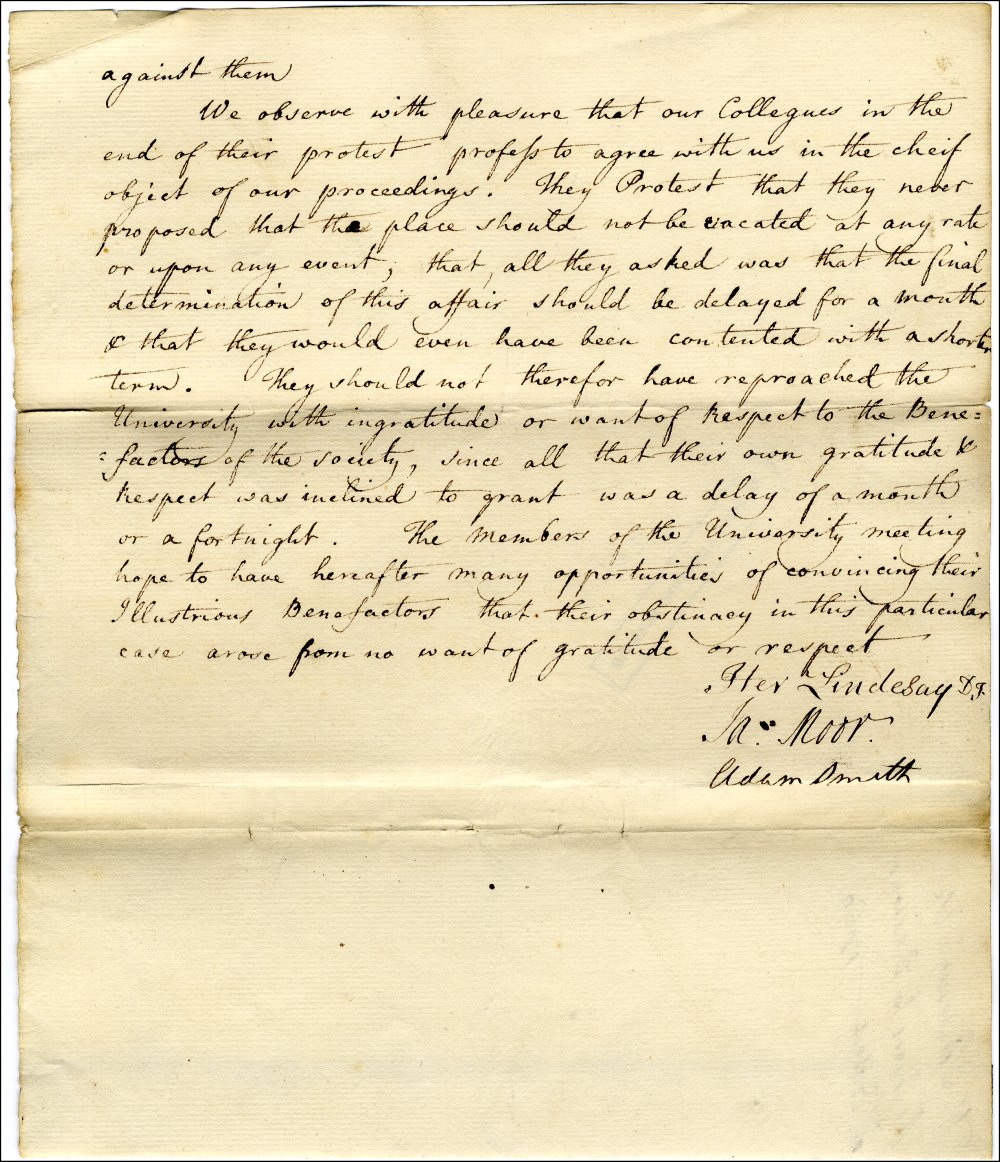 against them
We observe with pleasure that our Collegues in the
end of their protest profess to agree with us in the cheif
object of our proceedings. They Protest that they never
proposed that the place should not be vacated at any rate
or upon any event; that, all they asked was that the final
determination of this affair should be delayed for a month
& that they would even have been contented with a shorter
term. They should not therefor have reproached the
University with ingratitude or want of Respect to the Bene=
=factors of the society, since all that their own gratitude &
Respect was inclined to grant was a delay of a month
or a fortnight. The Members of the University meeting
hope to have hereafter many opportunities of convincing their
Illustrious Benefactors that their obstinacy in this particular
case arose from no want of gratitude or respect
Her Lindesay
Jas. Moor.
Adam Smith